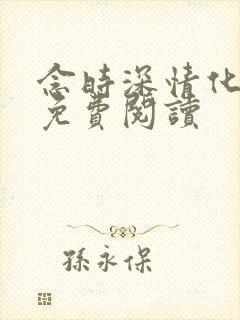 念時深情化
免費閱讀
孫永保